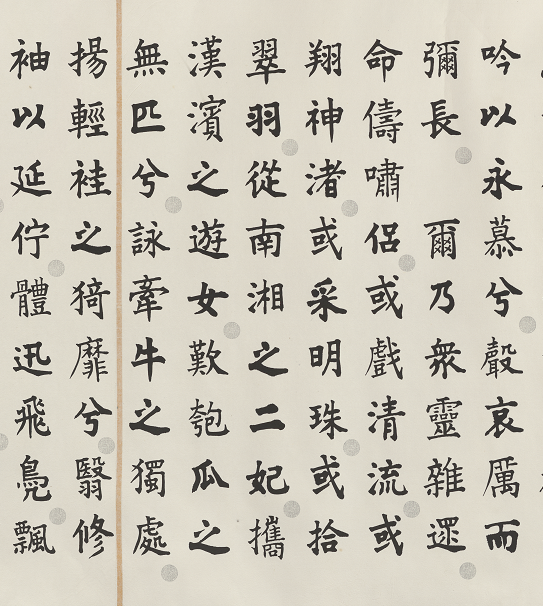 吟以永慕兮聲哀厲而
彌長　爾乃衆靈雜遝
命儔嘯侶或戲清流或
翔神渚或采明珠或拾
翠羽從南湘之二妃攜
漢濱之遊女歎匏瓜之
無匹兮詠牽牛之獨處
揚輕袿之猗靡兮翳修
袖以延佇體迅飛鳧飄